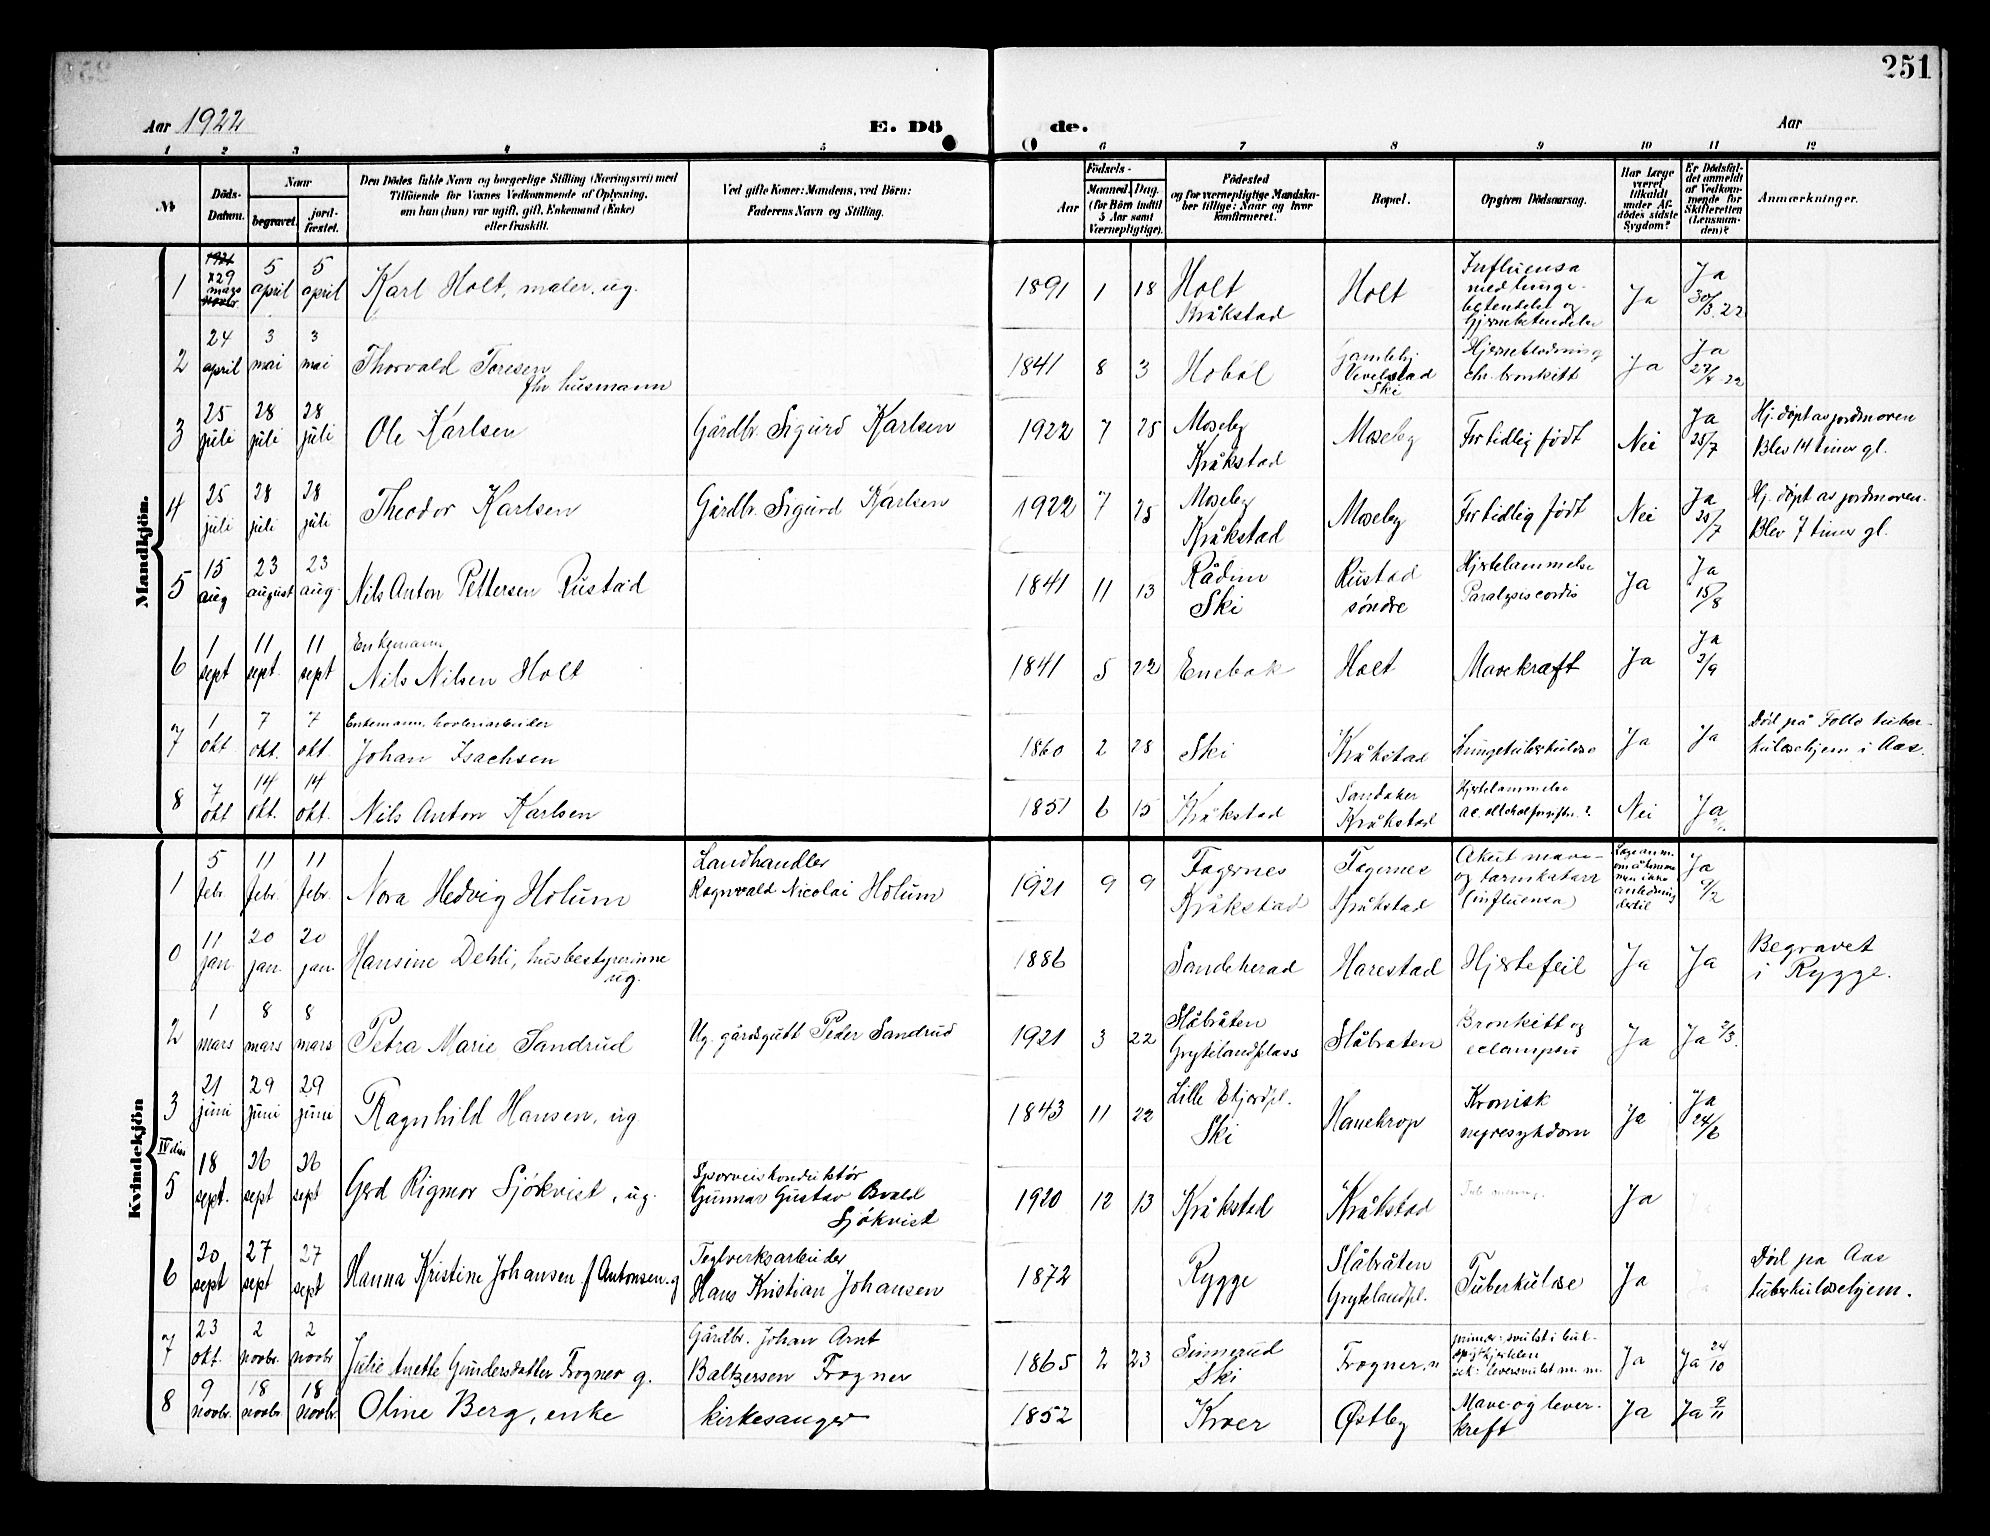 251
Aar 1922 E. Dö de. Aar
1 2 3 4 5 6 7 8 9 10 11 12
№
Döds-Datum.
Naar
begravet.
jord-fæstet.
Den Dödes fulde Navn og borgerlige Stilling (Næringsvei) med
Tilföiende for Voxnes Vedkommende af Oplysning,
om han (hun) var ugift, gift, Enkemand (Enke)
eller fraskilt.
Ved gifte Koner: Mandens, ved Börn:
Faderens Navn og Stilling.
Födsels-
Aar
Maaned. Dag.
(for Börn indtil
5 Aar samt
Værnepligtige).
Födested
og for værnepligtige Mandska-
ber tillige: Naar og hvor
konfirmeret.
Bopæl.
Opgiven Dödsaarsag.
Har Læge
været
tilkaldt
under Af-
dödes sidste
Sygdom?
Er Dödsfal-
det anmeldt
af Vedkom-
mende for
Skifteretten
(Lensman-
den)?
Anmærkninger.
Mandkjön.
1 1921 29 mars novbr 5 april 5 april Karl Holt, maler, ug. 1891 1 18 Holt Kråkstad Holt Influensa med lunge-betendelse og Hjernebetendelse Ja Ja 30/3 22
2 24 april 3 mai 3 mai Thorvald Toresen fhv. husmann 1841 8 3 Hobøl Gamlehj. Vevelstad Ski Hjerneblødning chr. bronkitt Ja Ja 27/4 22
3 25 juli 28 juli 28 juli Ole Karlsen Gårdbr. Sigurd Karlsen 1922 7 25 Moseby Kråkstad Moseby For tidlig født Nei Ja 25/7 Hj. døpt av jordmoren Blev 14 timer gl.
4 25 juli 28 juli 28 juli Theodor Karlsen Gårdbr. Sigurd Karlsen 1922 7 25 Moseby Kråkstad Moseby For tidlig født Nei Ja 25/7 Hj. døpt av jordmoren. Blev 7 timer gl.
5 15 aug 23 august 23 aug. Nils Anton Pettersen Rustad 1841 11 13 Ski Rustad søndre Hjertelammelse Paralysis cordis Ja Ja 15/8
6 1 sept 11 sept. 11 sept Enkemann Nils Nilsen Holt 1841 5 22 Enebak Holt Mavekræft Ja Ja 2/9
7 1 okt 7 okt. 7 okt Enkemann, høvleriarbeider Johan Isachsen 1860 2 28 Ski Kråkstad Lungetuberkulose Ja Ja Død på Follo tuber-kulosehjem i Aas.
8 7 okt 14 okt. 14 okt. Nils Anton Karlsen 1851 6 15 Kråkstad Sandaker Kråkstad Hjertelammelse ac. alkoholforgiftn.? Nei Ja
Kvindekjön
1 5 febr. 11 febr. 11 febr. Nora Hedvig Holum Landhandler Ragnvald Nicolai Holum 1921 9 9 Fagernes Kråkstad Fagernes Kråkstad Akut mave- og tarmkatarr (influensa) Ja
0 11 jan. 20 jan. 20 jan. Hansine Dehli, husbestyrerinne ug. 1886 Sandeherad Harestad Hjertefeil Ja Ja Begravet i Rygge.
2 1 mars 8 mars 8 mars Petra Marie Sandrud Ug. gårdsgutt Peder Sandrud 1921 3 22 Slåbråten Grytelandplass Slåbraten Bronkitt og eclampsi Ja Ja 2/3.
3 21 juni 29 juni 29 juni Ragnhild Hansen, ug 1843 11 22 Lille Ekjerdpl. Ski Hanekrop Kronisk nyresykdom Ja Ja 24/6
5 18 sept. 26 sept 26 sept Gerd Rigmor Sjökvist, ug. Sporveiskonduktør Gunnar Gustav Osvald Sjökvist 1920 12 13 Kråkstad Kråkstad Ja
6 20 sept 27 sept 27 sept Hanna Kristine Johansen f Antonsen. g Teglverksarbeider Hans Kristian Johansen 1872 Rygge Slåbråten Grytelandpl. Tuberkulose Ja Død pa Aas tuberkulosehjem.
7 23 okt. 2 novbr. 2 novbr Julie Anette Gundersdatter Frogner g. Gårdbr. Johan Arnt Baltzersen Frogner 1865 2 23 Sinnerud Ski Frogner n primær svulst i buk-spytkjertelen sek: leversvulst m. m. Ja Ja 24/10
8 9 novbr. 18 novbr. 18 novbr. Oline Berg, enke kirkesanger 1852 Kroer Østby Mave- og lever-kreft Ja Ja 9/11